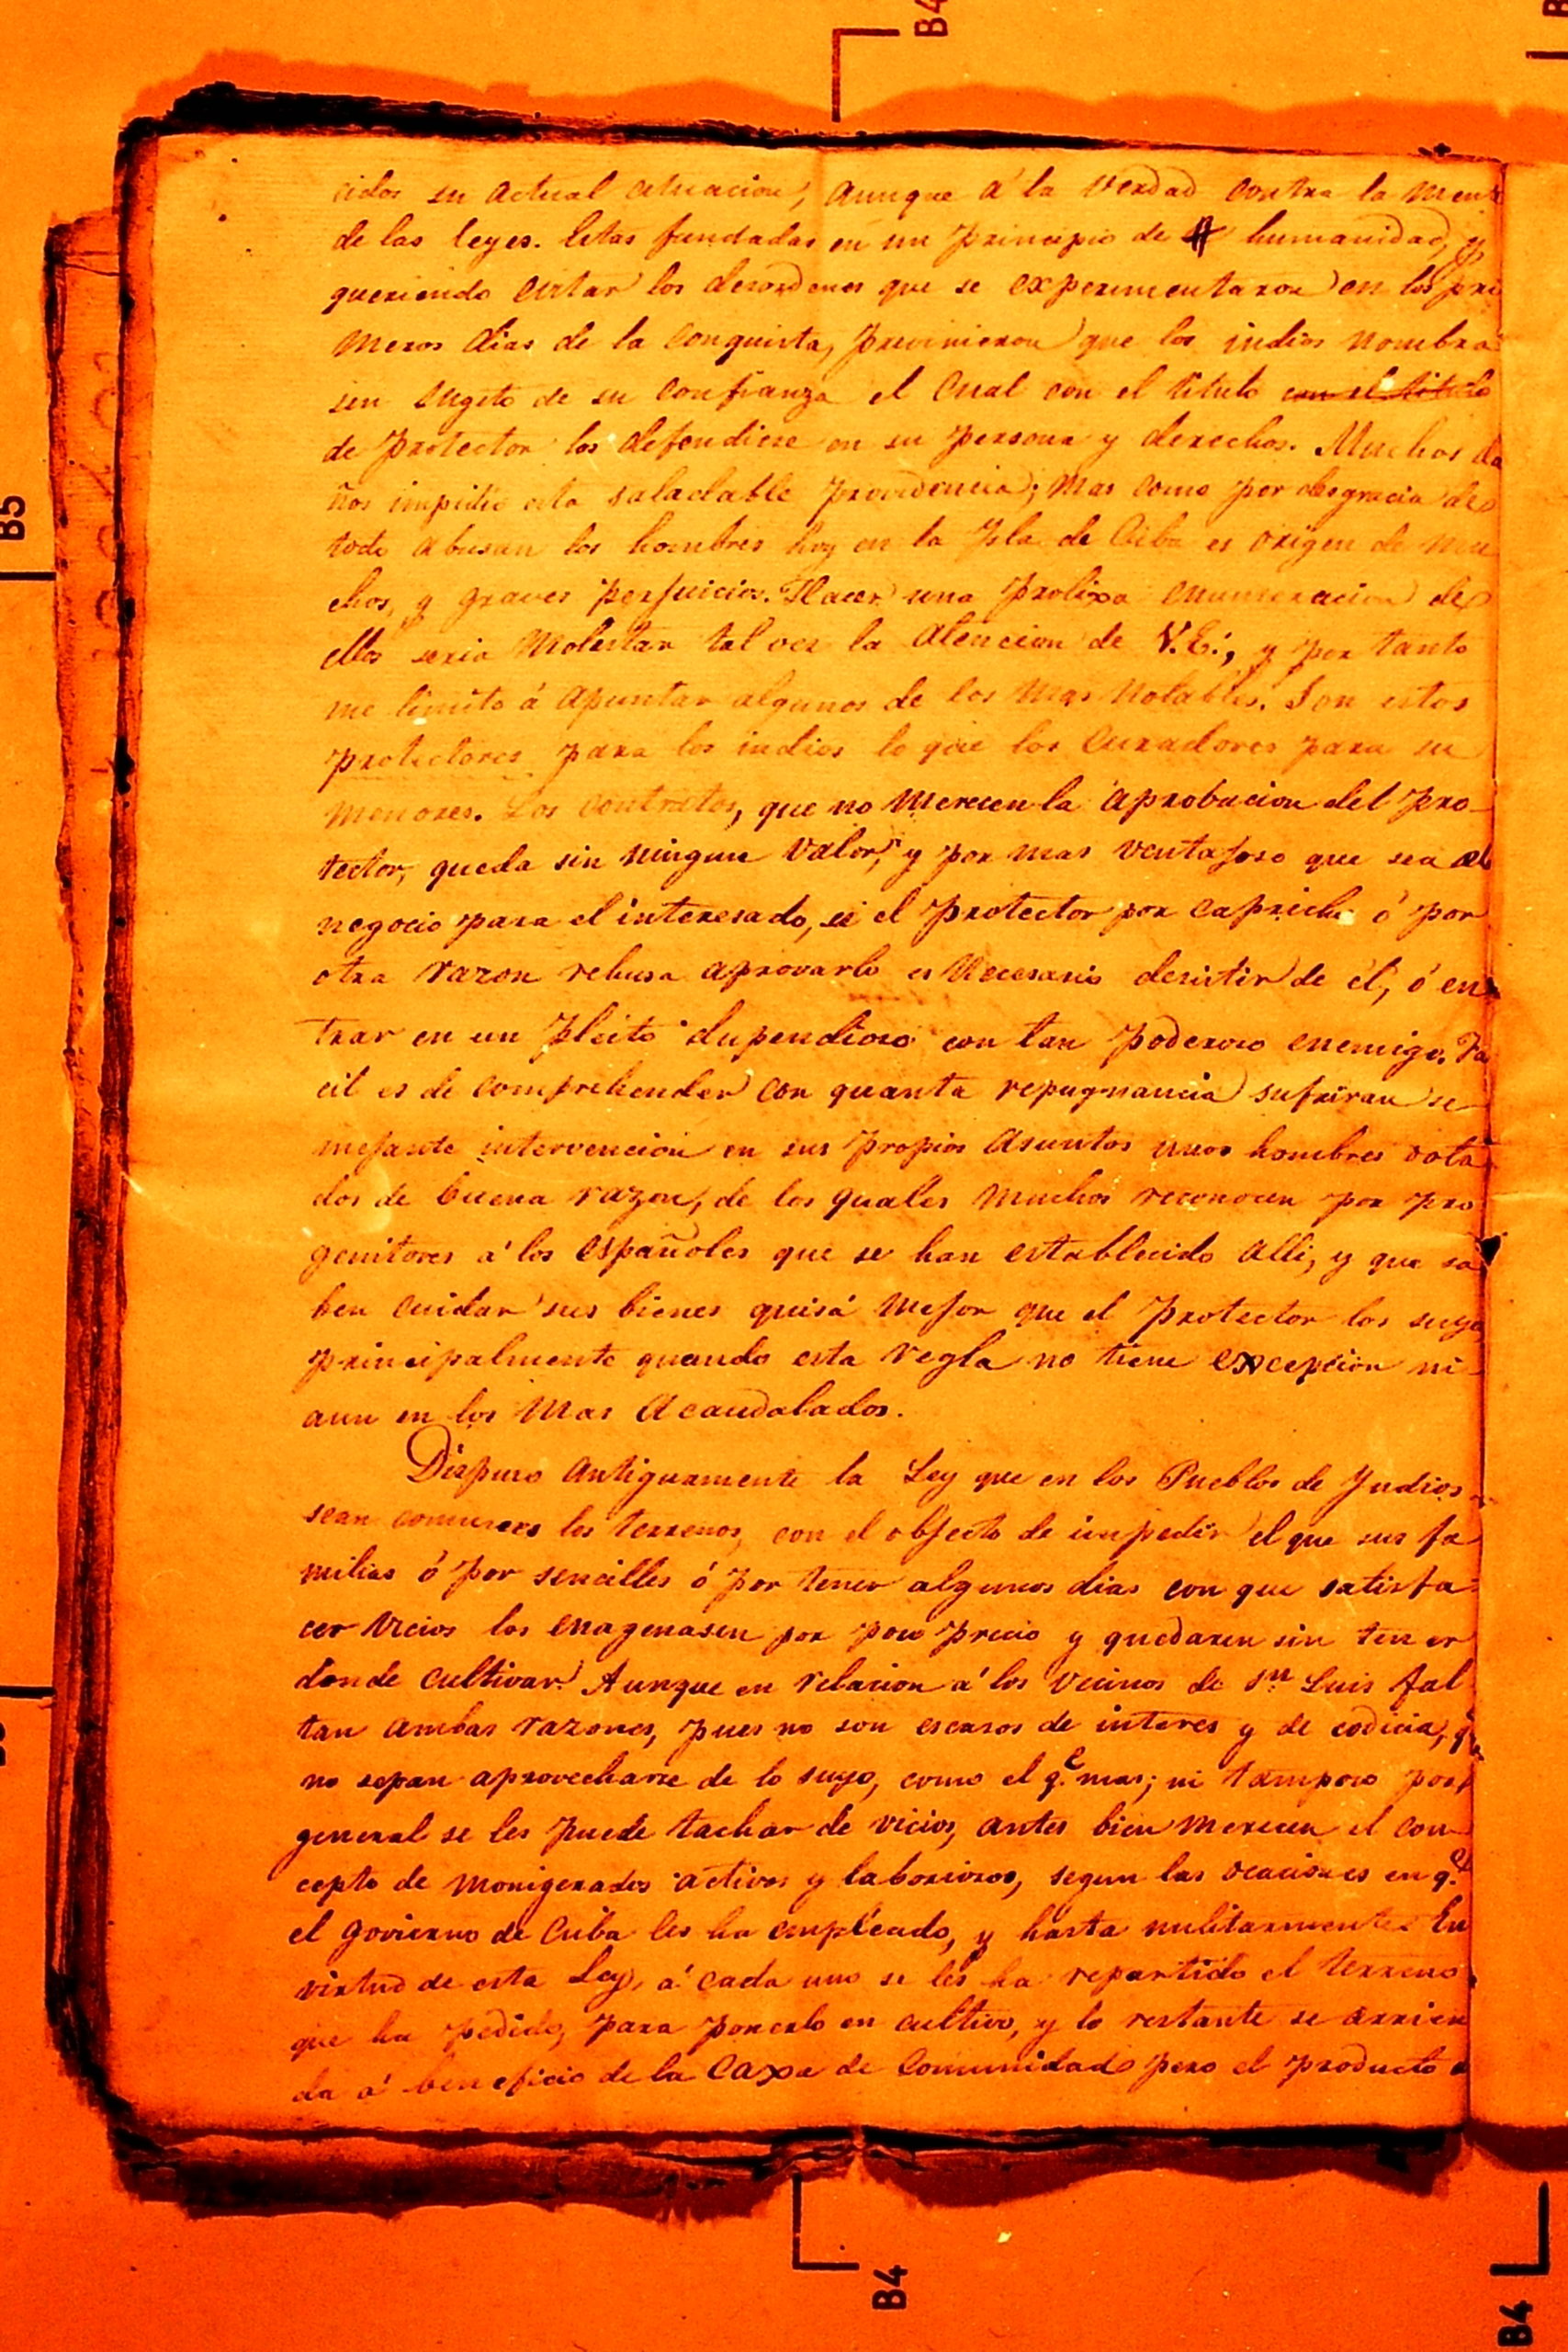 cidos su actual cituacion, aunque á la verdad contra la mente
de las leyes. Estas fundadas en un principio de humanidad, y
queriendo evitar los desordenes que se experimentaron en los pri
meros dias de la conquista, previnieron que los indios nombra
sen sugeto de su confianza el cual con el titulo con el titulo
de Protector los defendiese en su persona y derechos. Muchos da
ños impidio esta saludable providencia; mas como por desgracia de
todo abusan los hombres hoy en la Ysla de Cuba es origen de mu
chos, y graves perjuicios. Hacer una prolixa enumeracion de
ellos seria molestar tal vez la atencion de V.E., y por tanto
me limito á apuntar algunos de los mas notables. Son estos
protectores para los indios lo que los Curadores para su
menores. Los contratos, que no merecen la aprobacion del Pro-
tector, queda sin ningun valor, y por mas ventajoso que sea el
negocio para el interesado, si el Protector por capricho ó por
otra razon rehusa aprovarlo es necesario desistir de él, ó en
trar en un pleito dupendioso con tan poderoso enemigo. Fa
cil es de comprehender con quanta repugnancia sufriran se
mejante intervencion en sus propios asuntos unos hombres dota
dos de buena razon, de los quales muchos reconocen por pro
genitores á los españoles que se han establecido alli, y que sa
ben cuidar sus bienes quisá mejor que el Protector los suyo
principalmente quando esta regla no tiene excepcion ni
aun en los mas acaudalados.
Dispuso antiguamente la Ley que en los Pueblos de Yndios
sean comunes los terrenos, con el objecto de impedir el que sus fa
milias ó por sencilles ó por tener algunos dias con que satisfa
cer vicios los enagenasen por poco precio y quedasen sin tener
donde cultivar. Aunque en relacion á los vecinos de Sn Luis fal
tan ambas razones, pues no son escasos de interes y de codicia, qe
no sepan aprovecharse de lo suyo, como el q.e mas; ni tampoco por
general se les puede tachar de vicios, antes bien merecen el con-
cepto de morigerados activos y laboriosos, segun las ocaciones en q.e
el govierno de Cuba les ha empleado, y hasta militarmente. En
virtud de esta Ley, á cada uno se les ha repartido el terreno
que ha pedido, para ponerlo en cultivo, y lo restante se arrien
da á beneficio de la Caxa de Comunidad pero el producto
B4
B5
B4
B4